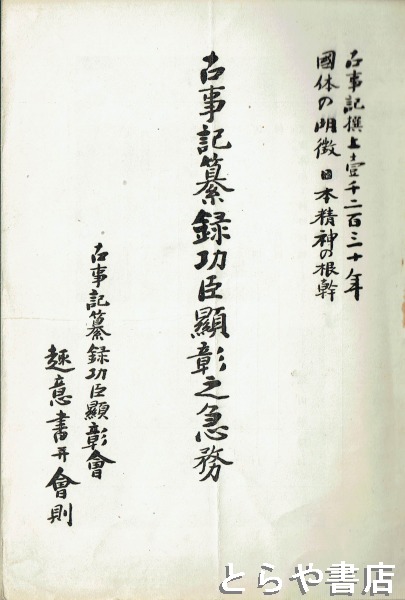 古事記撰上壹千二百三十年
國体の明徴 日本精神の根幹
古事記纂録功臣顯彰之急務
古事記纂録功臣顯彰會
趣意書并會則
とらや書店